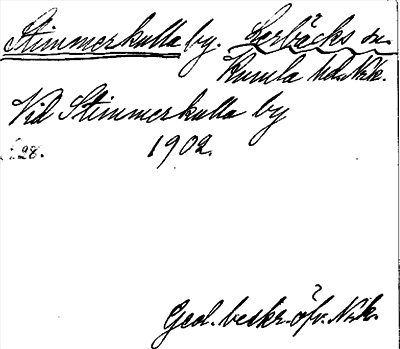 Stimmerkulla by. Lerbäcks sn.
Kumla hd. Nrk.
Vid Stimmerkulla by
s. 28. 1902.
Geol. beskr. öfv. Nrk.